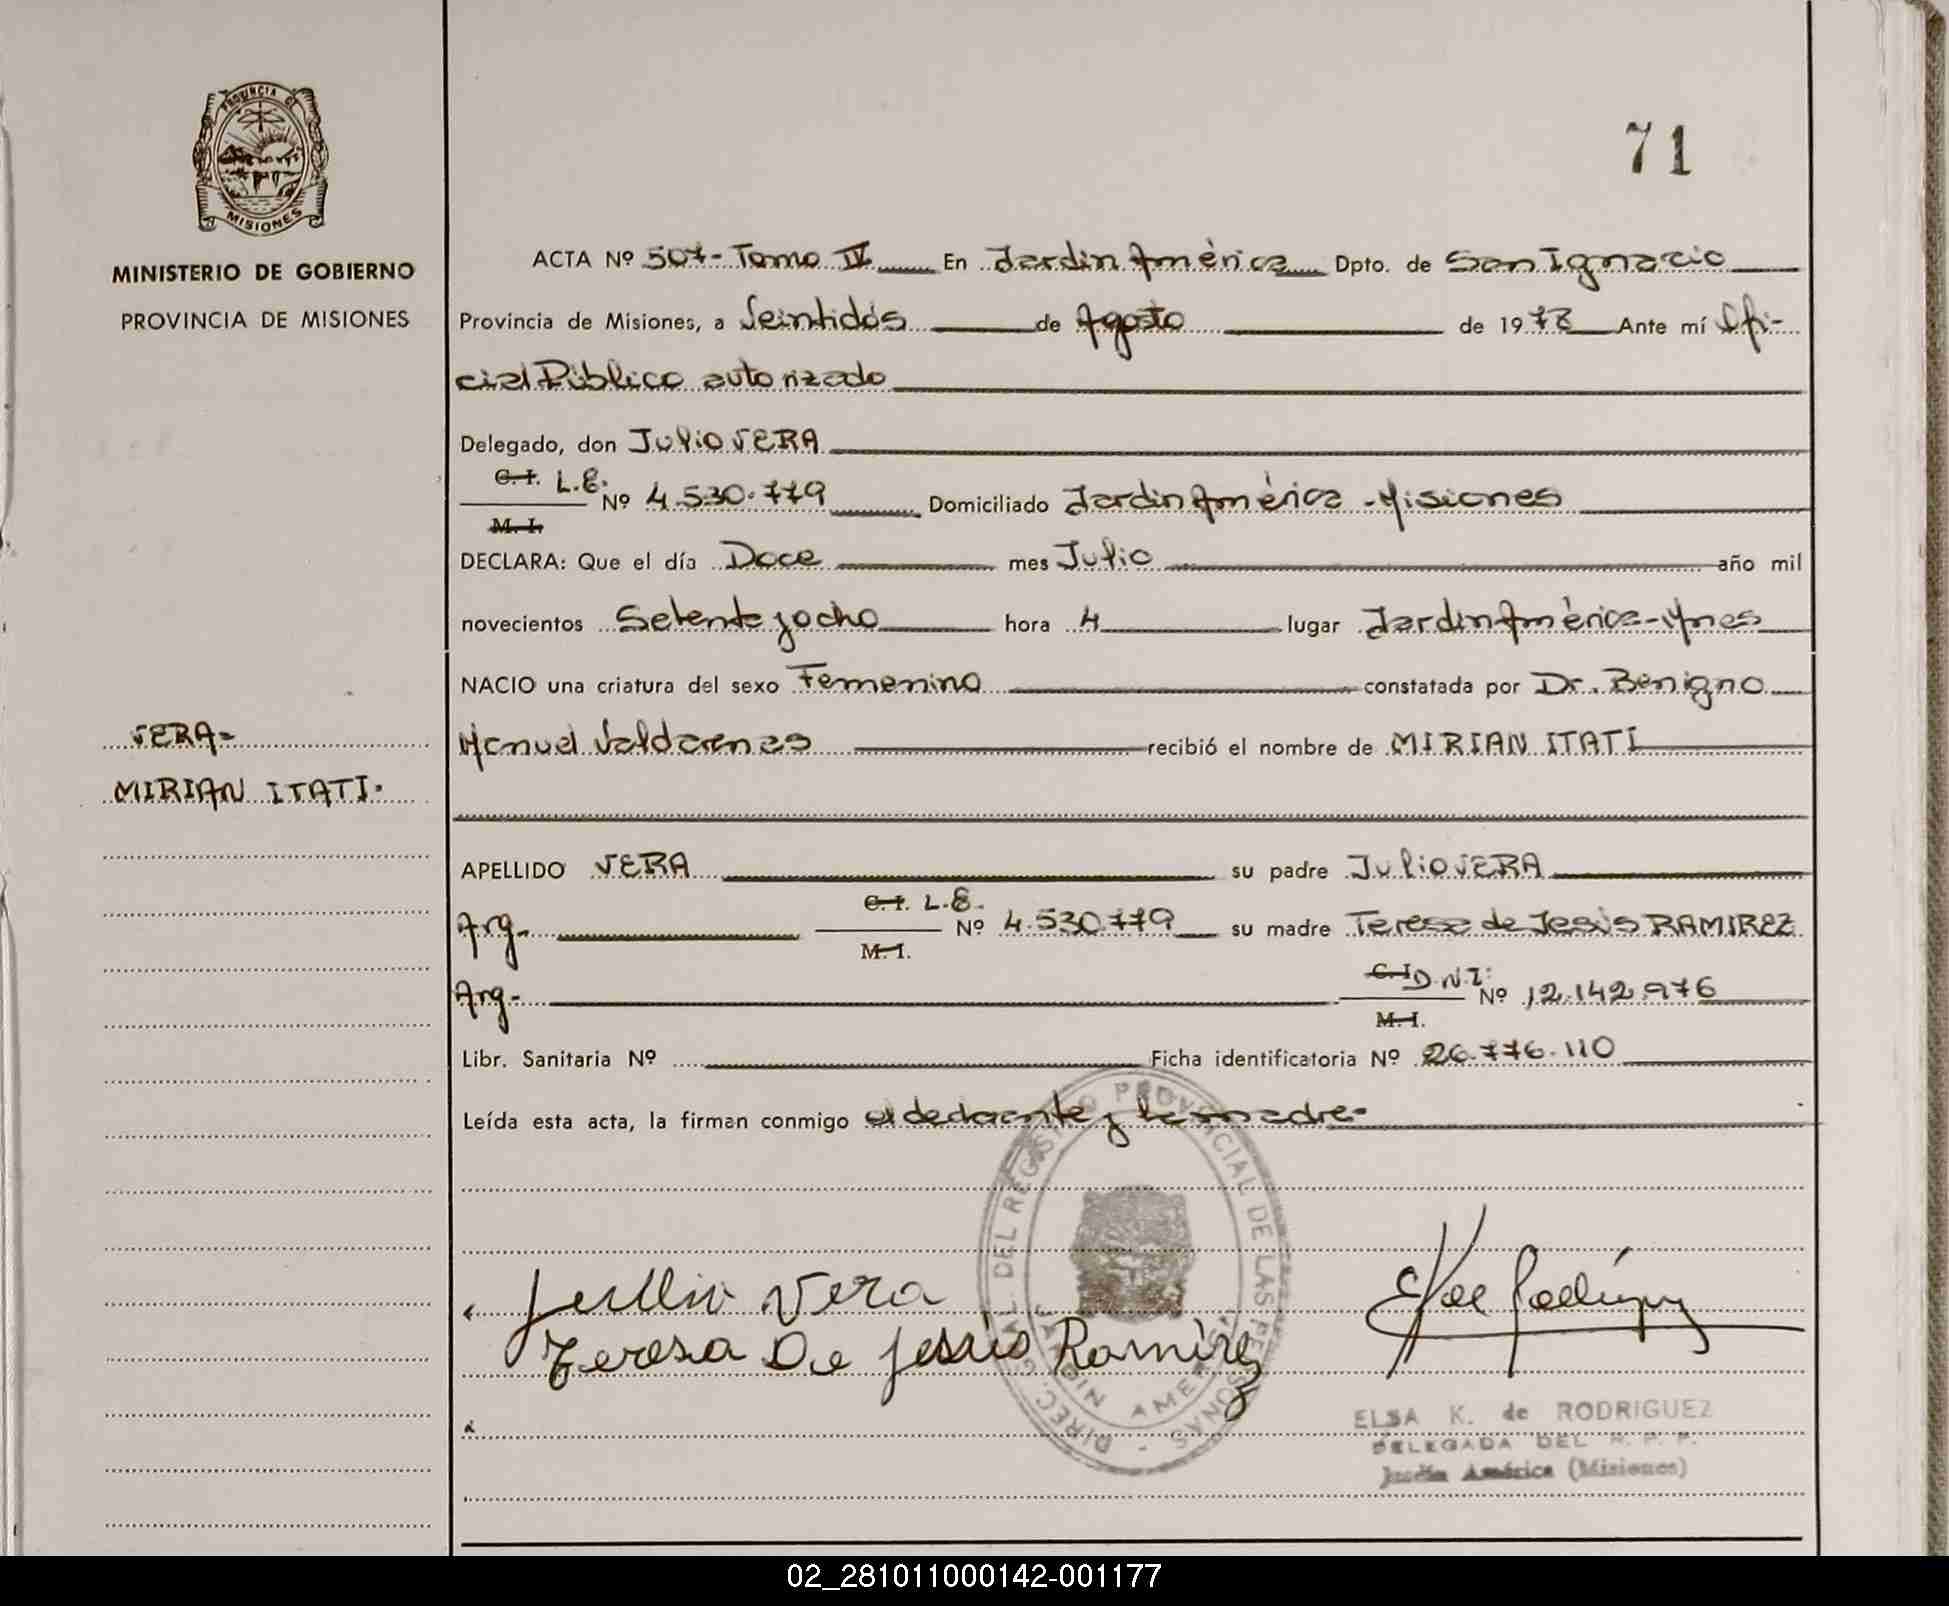 PROVINCIA DE
MISIONES
MINISTERIO DE GOBIERNO
PROVINCIA DE MISIONES
VERA-
MIRIAN ITATI.
71
ACTA Nº 507- Tomo IV En Jardín América Dpto. de San Ignacio
Provincia de Misiones, a Veintidós de Agosto de 1978 Ante mí Ofi-
cial Público autorizado
Delegado, don Julio VERA
C.I. L.E.
M.I. Nº 4.530.779 Domiciliado Jardín América - Misiones
DECLARA: Que el día Doce mes Julio año mil
novecientos Setenta y ocho hora 4 lugar Jardín América - Mnes
NACIO una criatura del sexo Femenino constatada por Dr. Benigno
Manuel recibió el nombre de MIRIAN ITATI
APELLIDO VERA su padre Julio VERA
Arg.- C.I. L.E. M.I. Nº 4.530.779 su madre Teresa de Jesús RAMIREZ
Arg.- C.I. D.N.I. M.I. Nº 12.142.976
Libr. Sanitaria Nº Ficha identificatoria Nº 26.776.110
Leída esta acta, la firman conmigo el declarante y la madre-
Jullio Vera
Teresa De Jesús Ramirez
DIREC. GRAL. DEL REGISTRO PROVINCIAL DE LAS PERSONAS -
JARDIN AMERICA
ELSA K. de RODRIGUEZ
DELEGADA DEL R. P. P.
Jardín América (Misiones)
02_281011000142-001177